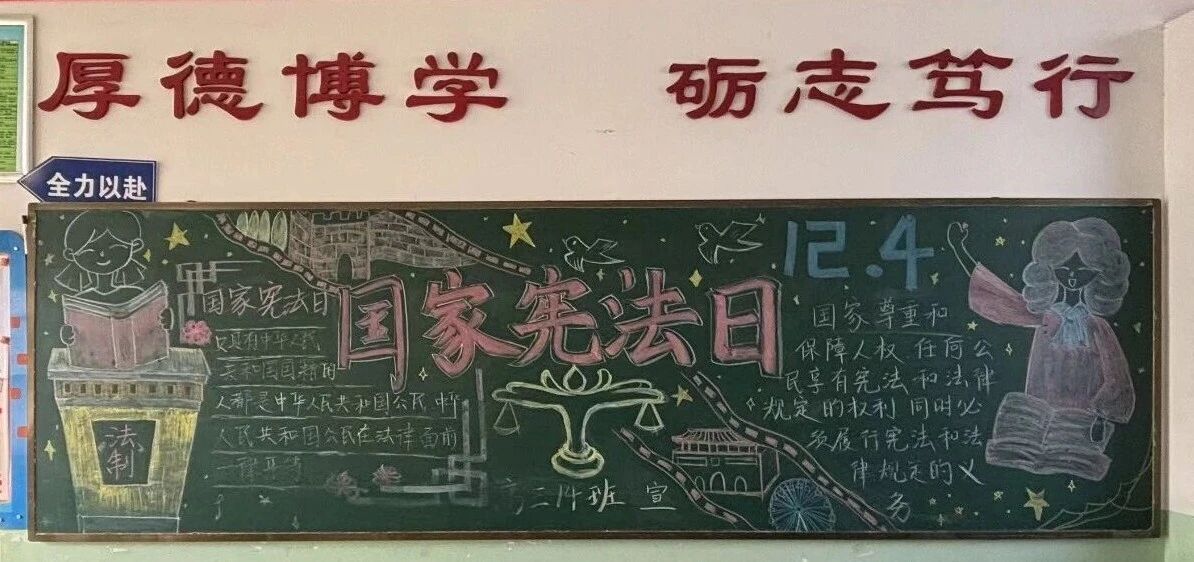 厚德博学 砺志笃行
全力以赴
12.4
国家宪法日
国家宪法日
凡具有中华人民
共和国国籍的
人都是中华人民共和国公民 中华
人民共和国公民在法律面前
一律平等
法制
国家尊重和
保障人权 任何公
民享有宪法和法律
规定的权利 同时必
须履行宪法和法
律规定的义
务
二14班 宣